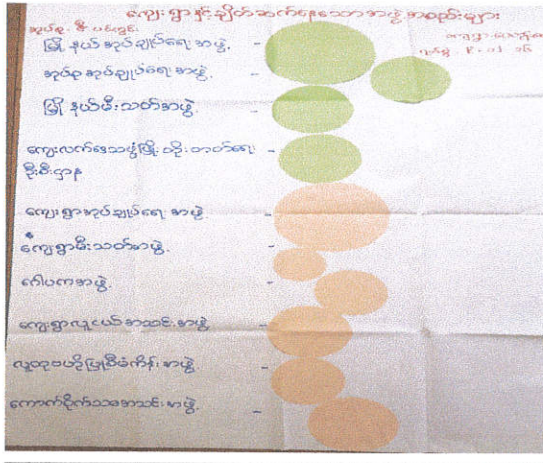 ကျေးရွာနှင့်ချိတ်ဆက်နေသောအဖွဲ့အစည်းများ
မြို့နယ်အုပ်ချုပ်ရေးအဖွဲ့ -
အုပ်စုအုပ်ချုပ်ရေးအဖွဲ့ -
မြို့နယ်မီးသတ်အဖွဲ့ -
ကျေးလက်ဒေသဖွံ့ဖြိုးတိုးတက်ရေး -
ဦးစီးဌာန
ကျေးရွာအုပ်ချုပ်ရေးအဖွဲ့ -
ကျေးရွာမီးသတ်အဖွဲ့ -
ကျေးရွာလူငယ်အသင်းအဖွဲ့ -
လူထုဗဟိုပြုစီမံကိန်းအဖွဲ့ -
ကောက်စိုက်သမအသင်းအဖွဲ့ -